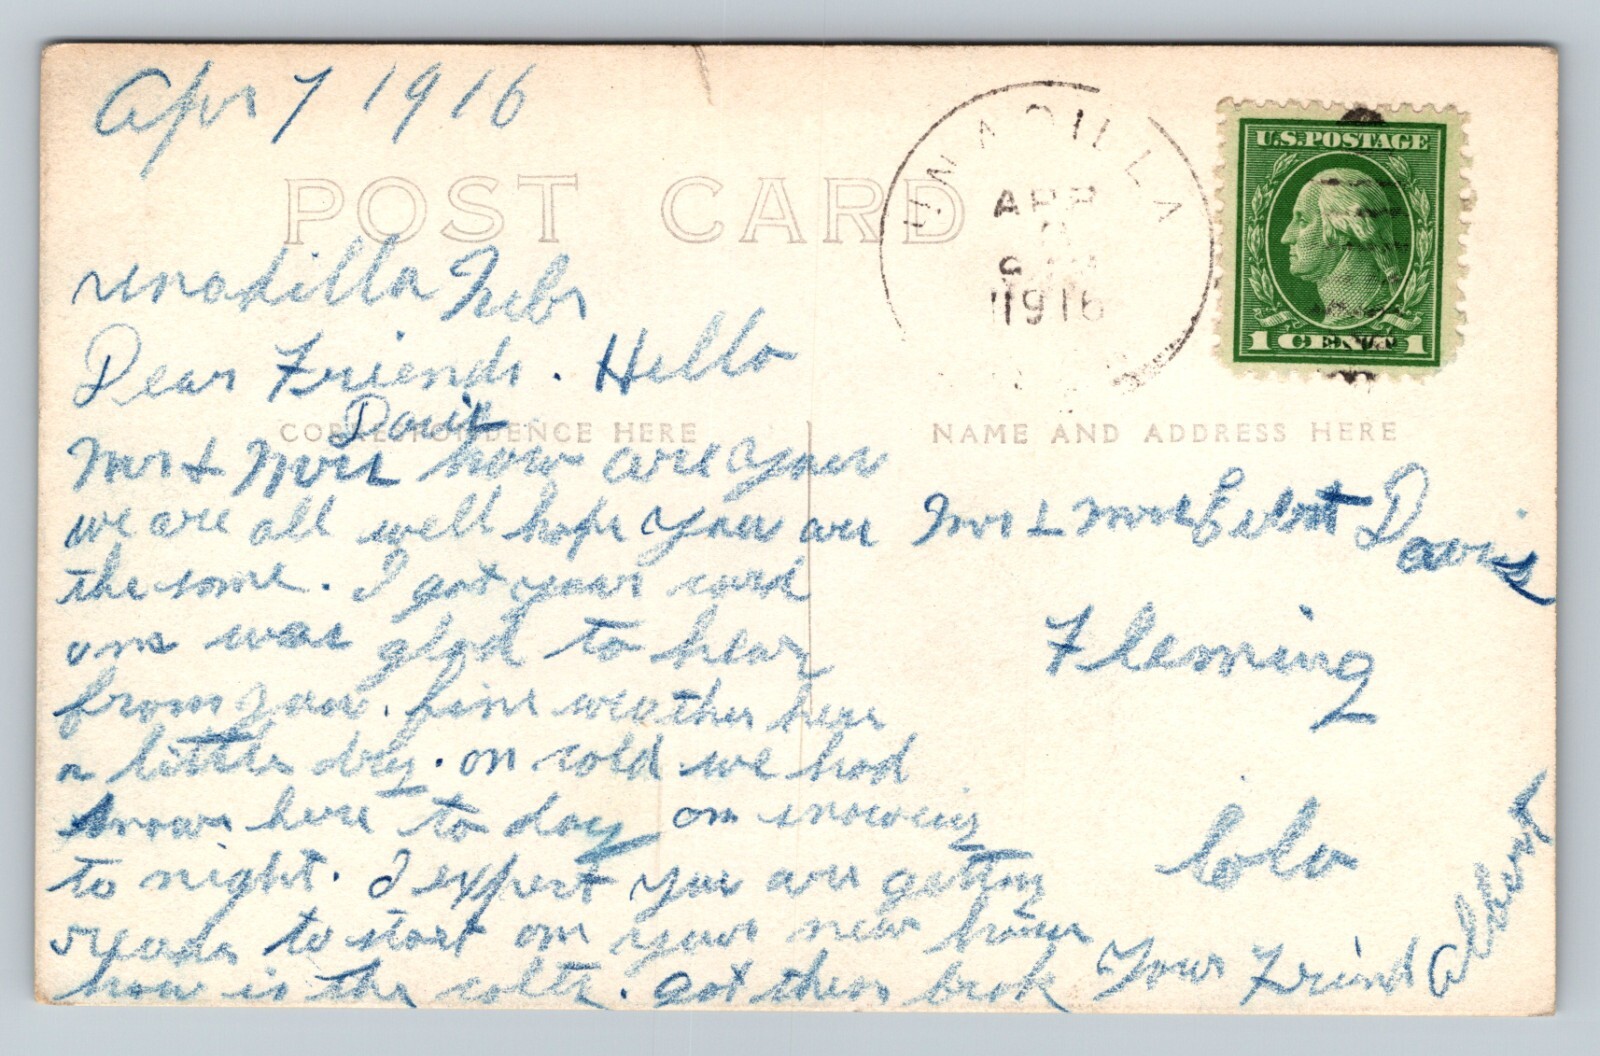 Apr 7 1916
UNADILLA
APR
9 AM
1916
U.S. POSTAGE
1 CENT 1
POST CARD
unadilla Nebr
Dear Friends. Hello
CORRESPONDENCE HERE
NAME AND ADDRESS HERE
Davis
Mr & Mrs how are you
we are all well hope you are
the same. I got your card
was glad to hear
from you. fine weather hear
a little dry. on cold we had
snow here to day on snowing
to night. I expect you are getting
ready to start on your new house
how is the colts. got them brok
Mr & Mrs Davis
Fleming
Colo
Your Friend